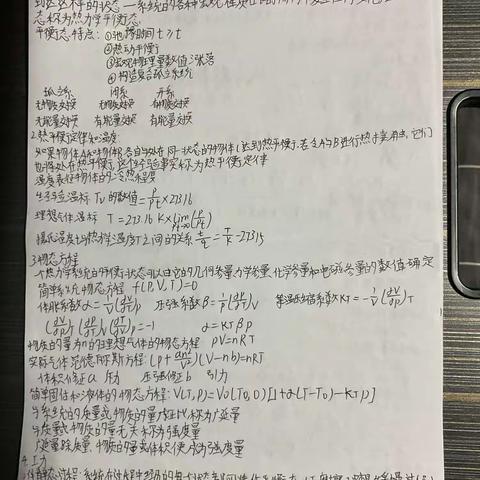 态称为热力学平衡态
平衡态特点: ①弛豫时间 t>τ
②热动平衡
③宏观物理量数值 涨落
④构造复合孤立系统
孤立系 闭系 开系
无物质交换 无物质交换 有物质交换
无能量交换 有能量交换 有能量交换
2.热平衡定律和温度:
如果物体A和物体B各自与处在同一状态的物体C达到热平衡,若令A与B进行热接触,它们
也将处在热平衡,这个经验事实称为热平衡定律
温度表征物体的冷热程度
Tv的数值=P/Pt×273.16
理想气体温标 T=273.16K×lim(P/Pt)
摄氏温度与热力学温度T之间的关系 t/℃=T/K-273.15
3.物态方程
一个热力学系统的平衡状态可以由它的几何参量力学参量化学参量和电磁参量的数值确定
简单系统物态方程 f(P,V,T)=0
体胀系数α=1/V(∂V/∂T)p 压强系数β=1/P(∂P/∂T)V 等温压缩系数KT=-1/V(∂V/∂P)T
(∂V/∂P)T(∂P/∂T)V(∂T/∂V)P=-1 α=KTβp
物质的量为n的理想气体的物态方程 pV=nRT
实际气体范德瓦斯方程:(P+an²/V²)(V-nb)=nRT
体积修正a 斥力 压强修正b 引力
简单固体和液体的物态方程:V(T,P)=V0(T0,0)[1+α(T-T0)-KTP]
与系统的质量或物质的量成正比,称为广延量
与质量或物质的量无关称为强度量
广延量除质量、物质的量或体积便成为强度量
4.功